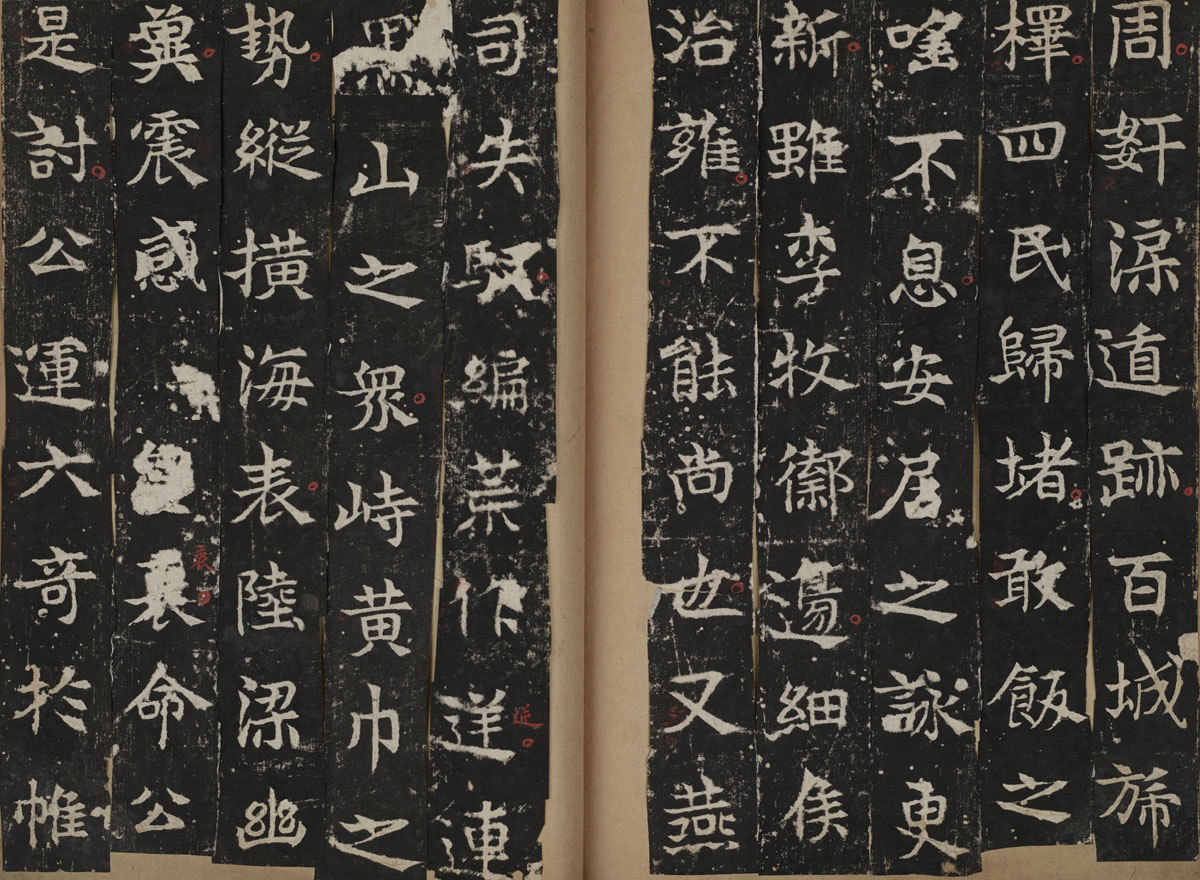 周奸深遁跡百城旆
擇四民歸堵敢飯之
嗂不息安居之詠更
新雖李牧御邊細侯
治雍不能尚也又燕
司失馭編荒作逆連
黑山之衆峙黃巾之
勢縱橫海表陸梁幽
冀震惑衷命公
是討公運六奇於帷
逆
衷